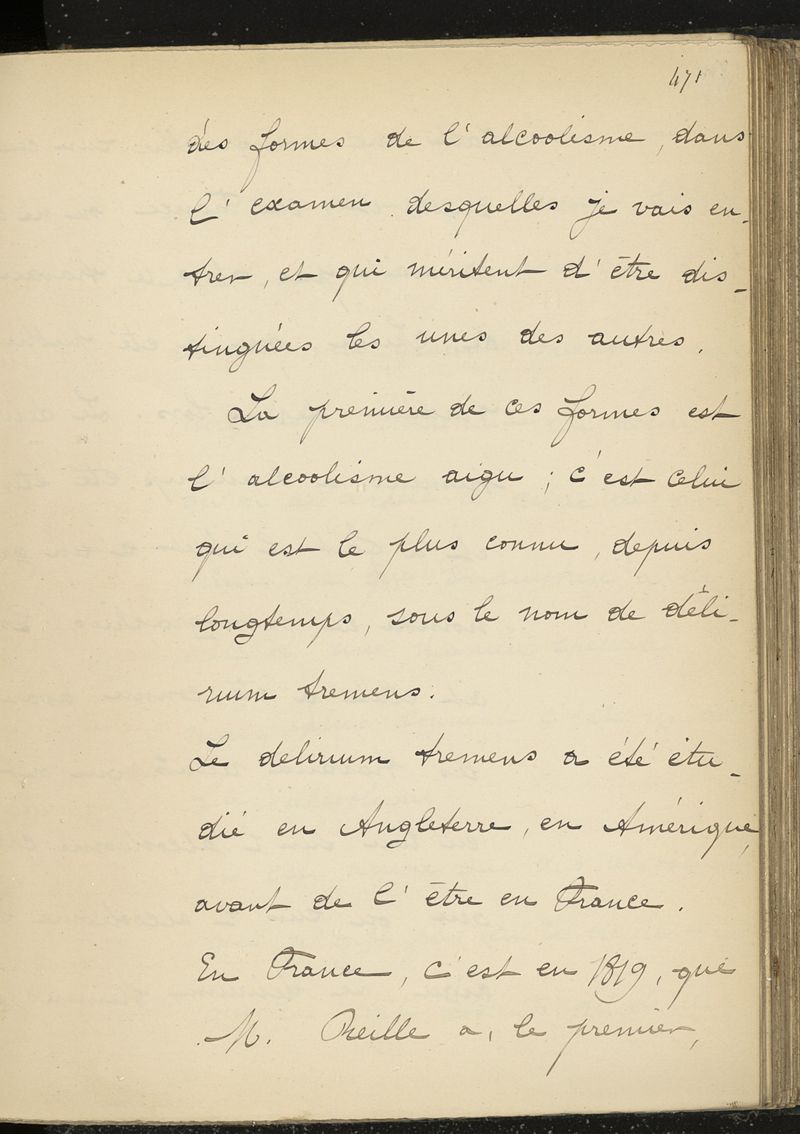 471
des formes de l'alcoolisme, dans
l'examen desquelles je vais en-
trer, et qui méritent d'être dis-
tinguées les unes des autres.
La première de ces formes est
l'alcoolisme aigu ; c'est celui
qui est le plus connu, depuis
longtemps, sous le nom de déli-
rium tremens.
Le delirium tremens a été étu-
dié en Angleterre, en Amérique,
avant de l'être en France.
En France, c'est en 1819, que
M. Reille a, le premier,